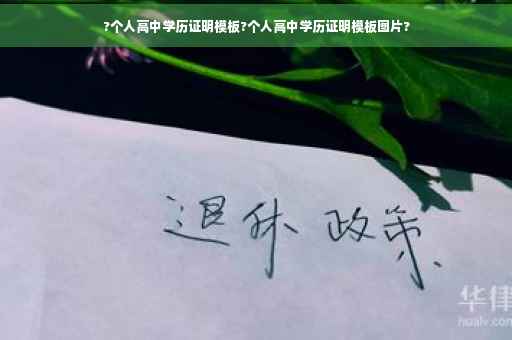 ?个人高中学历证明模板?个人高中学历证明模板图片?
退休 政策
华律
hualv.com